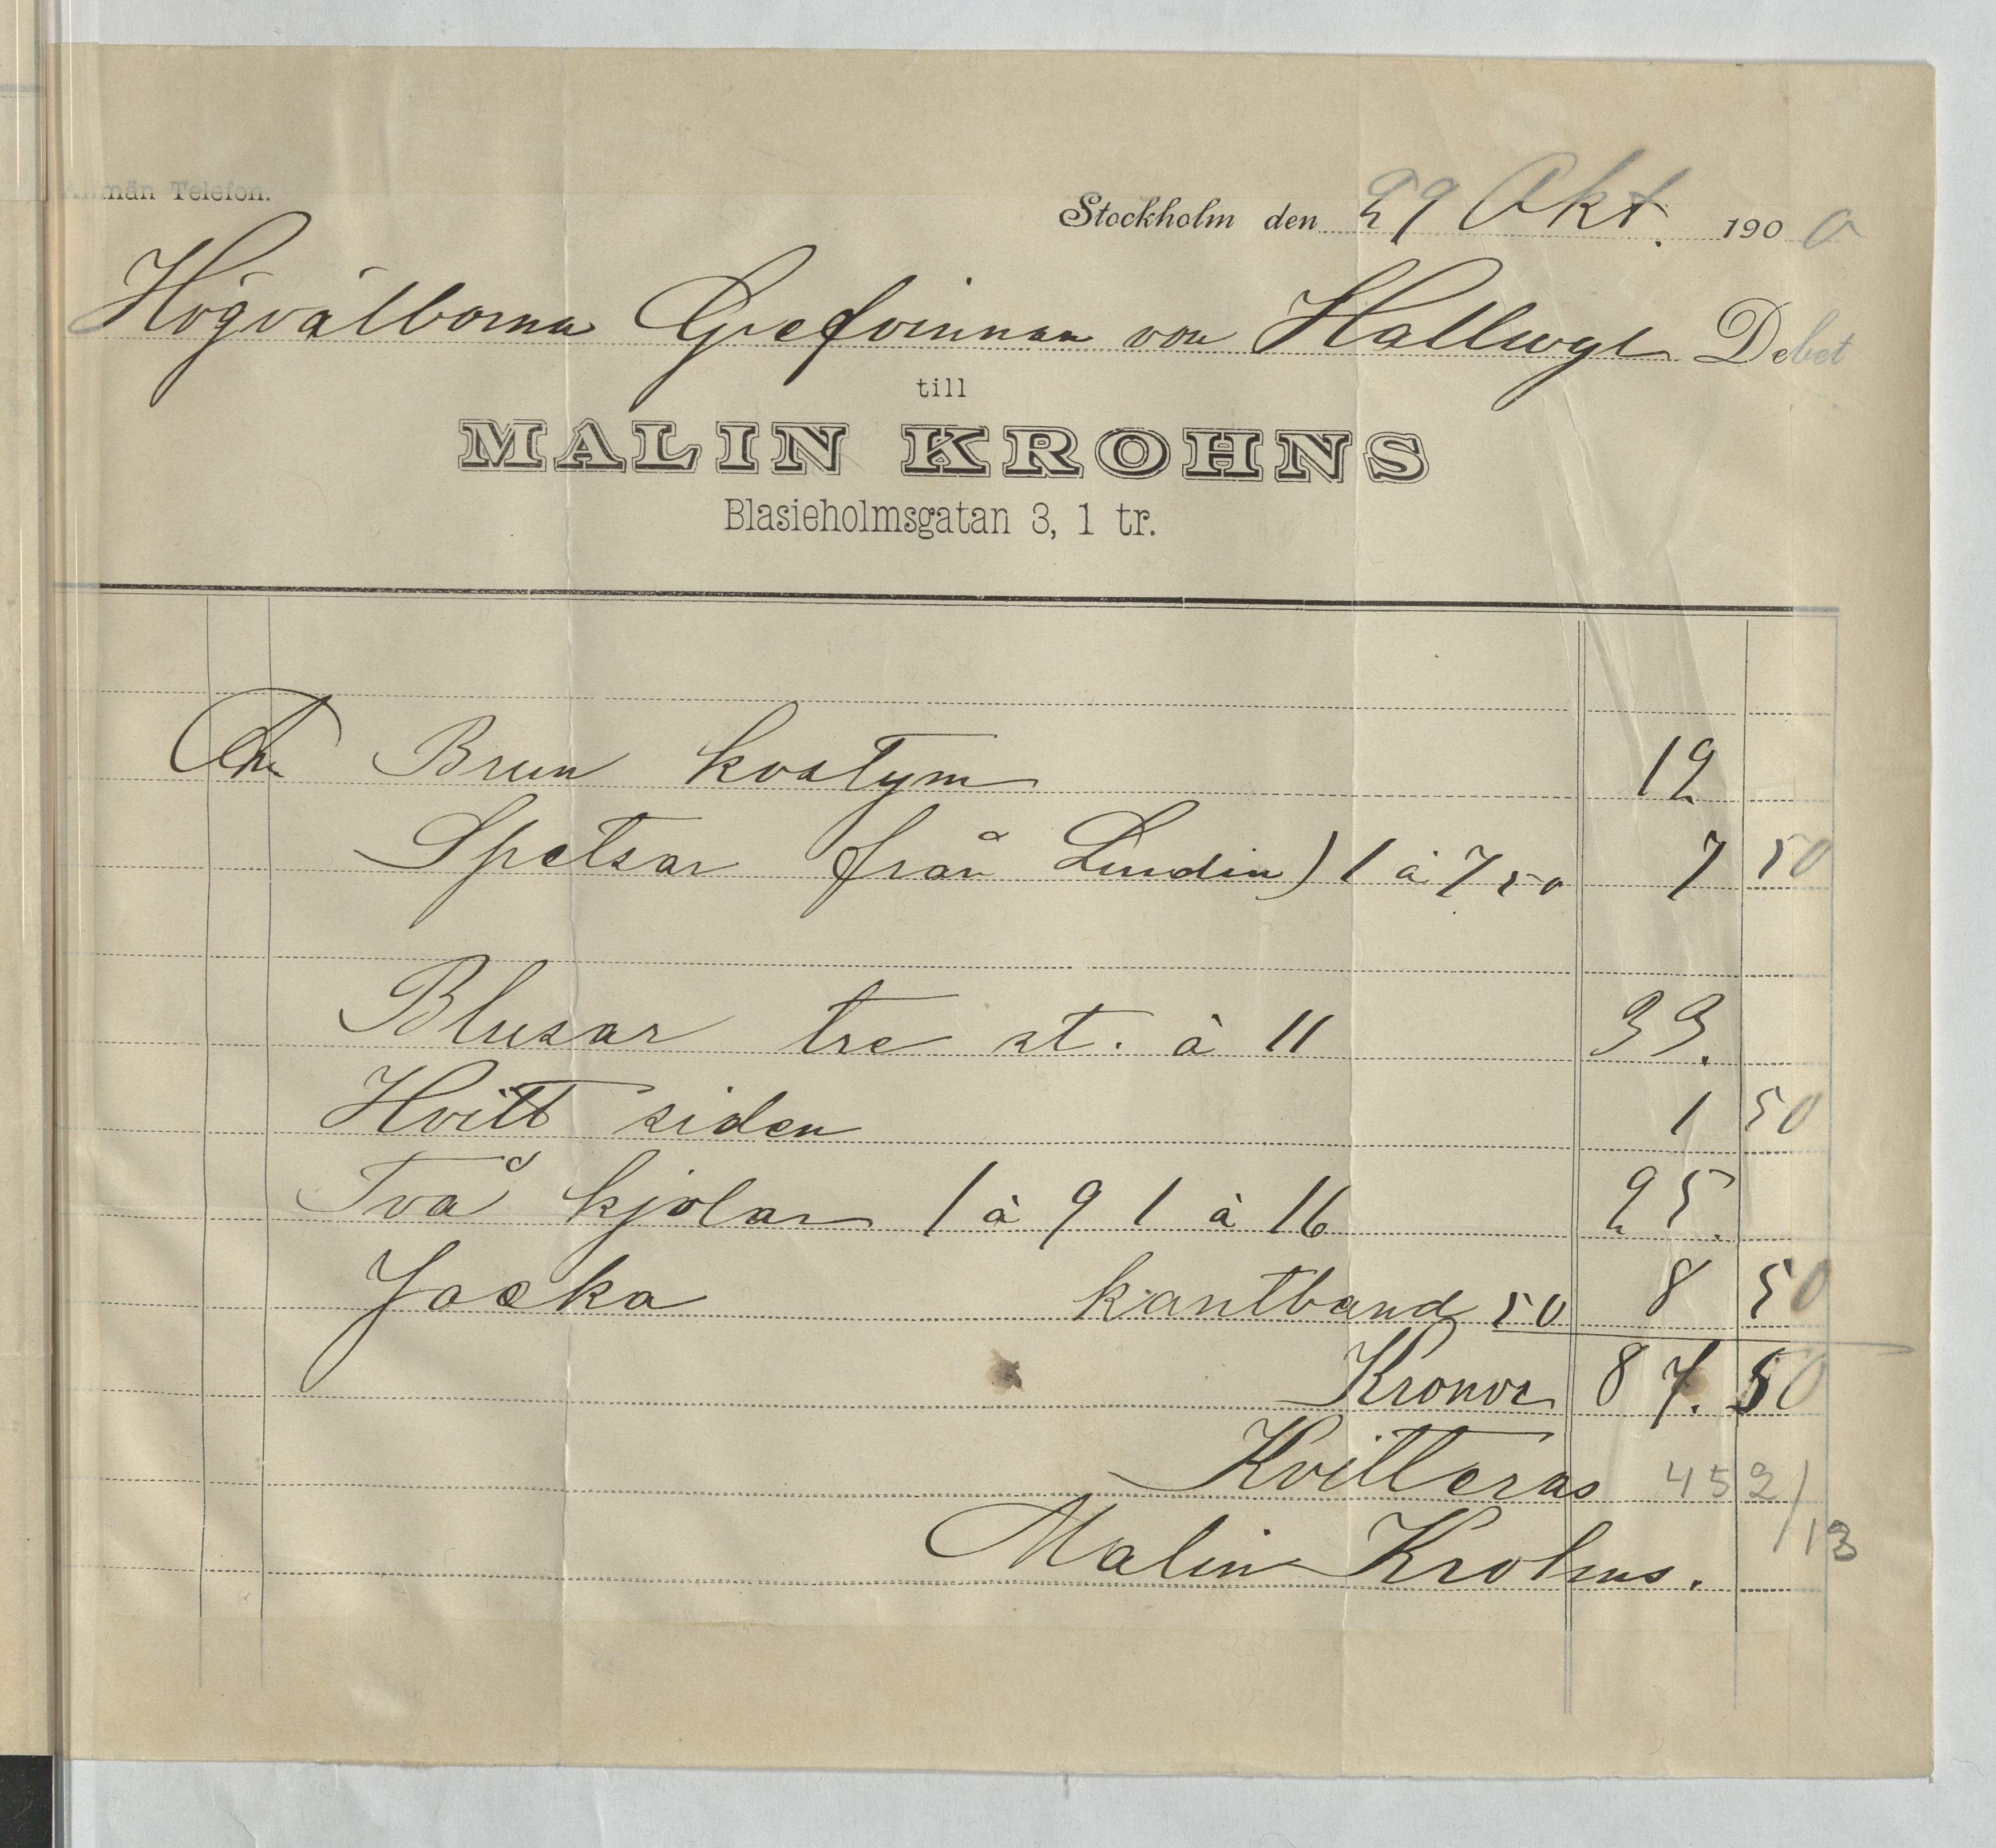 Allmän Telefon.
Stockholm den 29 Okt. 1900
Högvälborna Grefvinnan von Hallwyl Debet
till
MALIN KROHNS
Blasieholmsgatan 3, 1 tr.
Brun kostym 12
Spetsar från Lundin) 1 à 7 50 7 50
Blusar tre st. à 11 33.
Hvitt siden 1 50
Två kjolar 1 à 9 1 à 16 25.
Jacka kantband 50 8 50
Kronor 87.50
Kvitteras 452/
13
Malin Krohns.